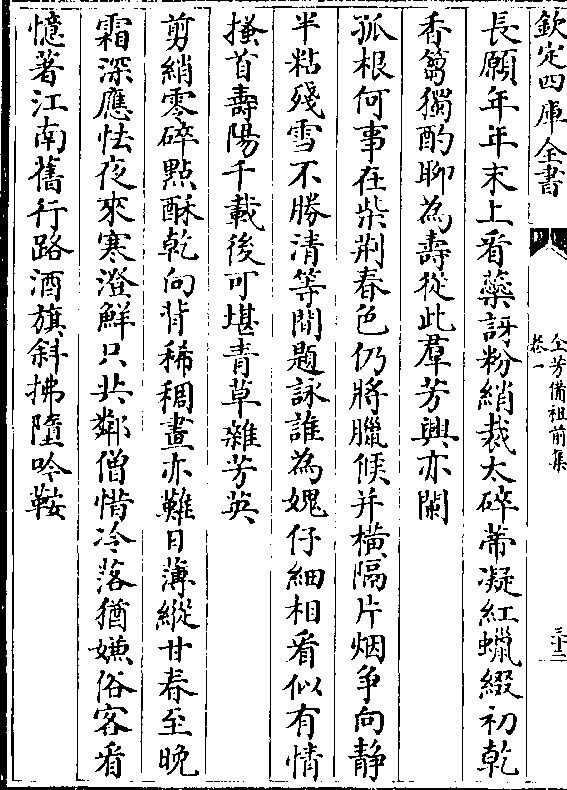 欽定四庫全書
全芳備祖前集
卷一
三十二
長願年年末上看蘂訝粉綃裁太碎蔕凝紅蠟綴初乾
香篘獨酌聊為壽從此羣芳興亦闌
孤根何事在柴荆春色仍將臘候并橫隔片烟爭向静
半粘殘雪不勝清等閒題詠誰為媿仔細相看似有情
搔首壽陽千載後可堪青草雜芳英
剪綃零碎點酥乾向背稀稠畫亦難日薄縱甘春至晚
霜深應怯夜來寒澄鮮只共鄰僧惜冷落猶嫌俗客看
憶著江南舊行路酒旗斜拂墮吟鞍